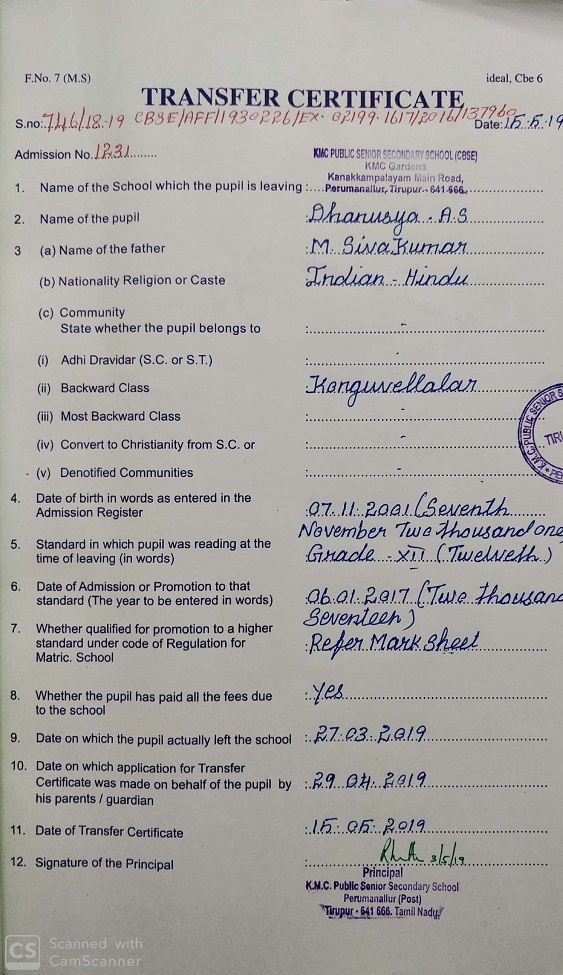 F.No. 7 (M.S)
ideal, Cbe 6
TRANSFER CERTIFICATE
S.no: 746/18-19 CBSE/AFF/1930226/EX-02199-1617/2016/137960 Date: 15.5.19
Admission No. 1231
KMC PUBLIC SENIOR SECONDARY SCHOOL (CBSE)
KMC Gardens
Kanakkampalayam Main Road,
1. Name of the School which the pupil is leaving : Perumanallur, Tirupur - 641 666.
2. Name of the pupil : Dhanusya . A.S
3 (a) Name of the father : M. SivaKumar
(b) Nationality Religion or Caste : Indian - Hindu
(c) Community
State whether the pupil belongs to : -
(i) Adhi Dravidar (S.C. or S.T.) : -
(ii) Backward Class : Konguvellalar
(iii) Most Backward Class : -
(iv) Convert to Christianity from S.C. or : -
(v) Denotified Communities : -
K.M.C. PUBLIC SENIOR S
TIRU
PE
4. Date of birth in words as entered in the
Admission Register : 07.11.2001 (Seventh
November Two thousand one
5. Standard in which pupil was reading at the
time of leaving (in words) : Grade - XII (Twelveth)
6. Date of Admission or Promotion to that
standard (The year to be entered in words) : 06.01.2017 (Two thousand
Seventeen)
7. Whether qualified for promotion to a higher
standard under code of Regulation for
Matric. School : Refer Mark Sheet
8. Whether the pupil has paid all the fees due
to the school : Yes
9. Date on which the pupil actually left the school : 27.03.2019
10. Date on which application for Transfer
Certificate was made on behalf of the pupil by
his parents / guardian : 29.04.2019
11. Date of Transfer Certificate : 15.05.2019
12. Signature of the Principal : 3/5/19
Principal
K.M.C. Public Senior Secondary School
Perumanallur (Post)
Tirupur - 641 666. Tamil Nadu
CS Scanned with
CamScanner